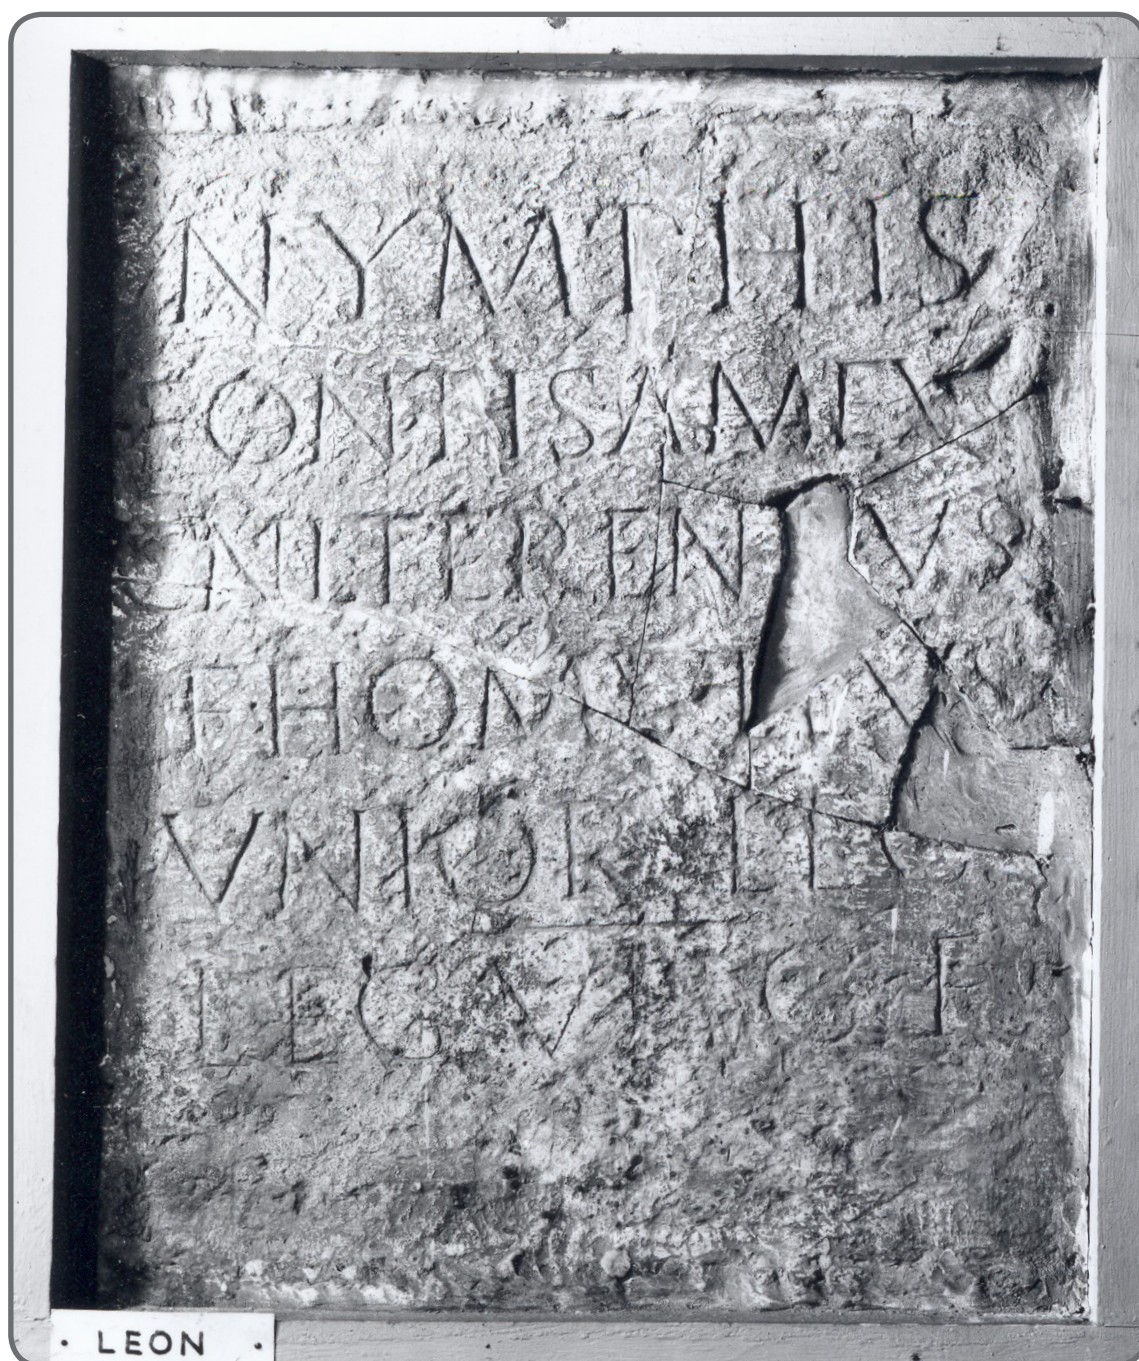 NYMPHIS
FONTIS AMEV
CNI L TEREN VS
F HOMVLLVS
VNIOR LEG
LEG VII G F
LEON